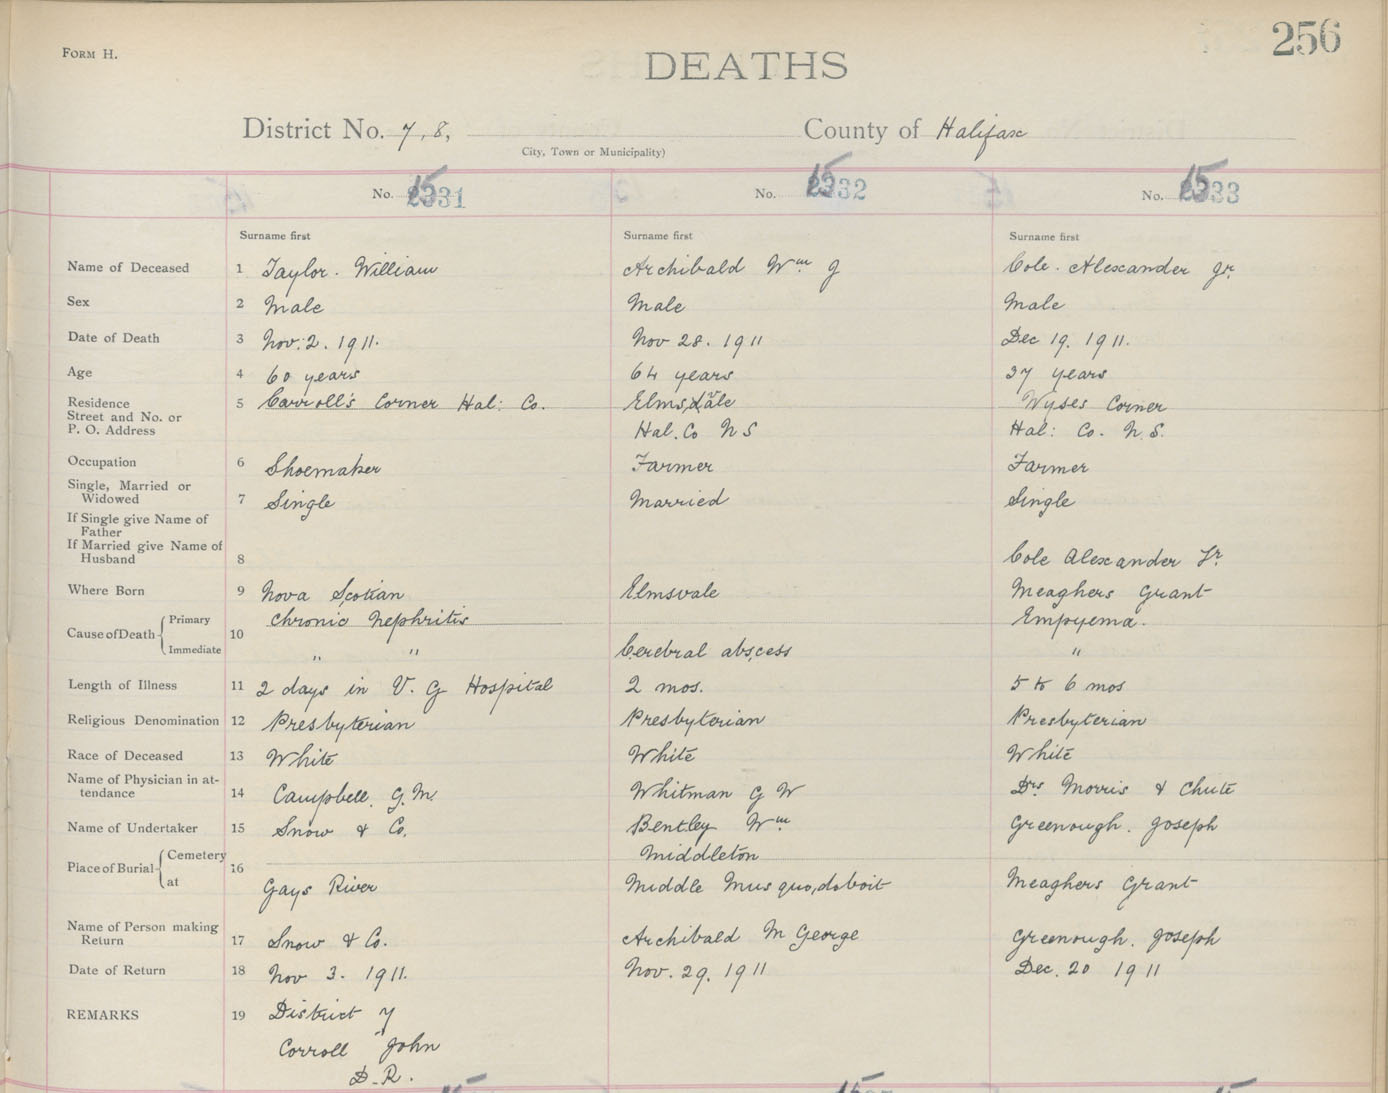 256
FORM H.
DEATHS
District No. 7, 8, County of Halifax
City, Town or Municipality)
No. 2331 No. 2332 No. 2333
15 15 15
Surname first Surname first Surname first
Name of Deceased 1 Taylor. William Archibald Wm G Cole. Alexander Jr.
Sex 2 Male Male Male
Date of Death 3 Nov. 2. 1911. Nov 28. 1911 Dec 19. 1911.
Age 4 60 years 64 years 37 years
Residence 5 Carroll's Corner Hal: Co. Elmsvale Wyses Corner
Street and No. or
P. O. Address Hal. Co N S Hal: Co. N. S.
Occupation 6 Shoemaker Farmer Farmer
Single, Married or
Widowed 7 Single Married Single
If Single give Name of
Father
If Married give Name of
Husband 8 Cole Alexander Sr.
Where Born 9 Nova Scotian Elmsvale Meaghers Grant
Cause of Death 10 Primary Chronic Nephritis Empyema.
Immediate " " Cerebral abscess "
Length of Illness 11 2 days in V. G Hospital 2 mos. 5 to 6 mos
Religious Denomination 12 Presbyterian Presbyterian Presbyterian
Race of Deceased 13 White White White
Name of Physician in at-
tendance 14 Campbell. G. M. Whitman G W Drs Morris & Chute
Name of Undertaker 15 Snow & Co. Bentley Wm Greenough. Joseph
Place of Burial 16 Cemetery Middleton
at Gays River Middle Musquodoboit Meaghers Grant
Name of Person making
Return 17 Snow & Co. Archibald M George Greenough. Joseph
Date of Return 18 Nov 3. 1911. Nov. 29. 1911 Dec. 20 1911
REMARKS 19 District 7
Corroll John
D. R.
15 15 15